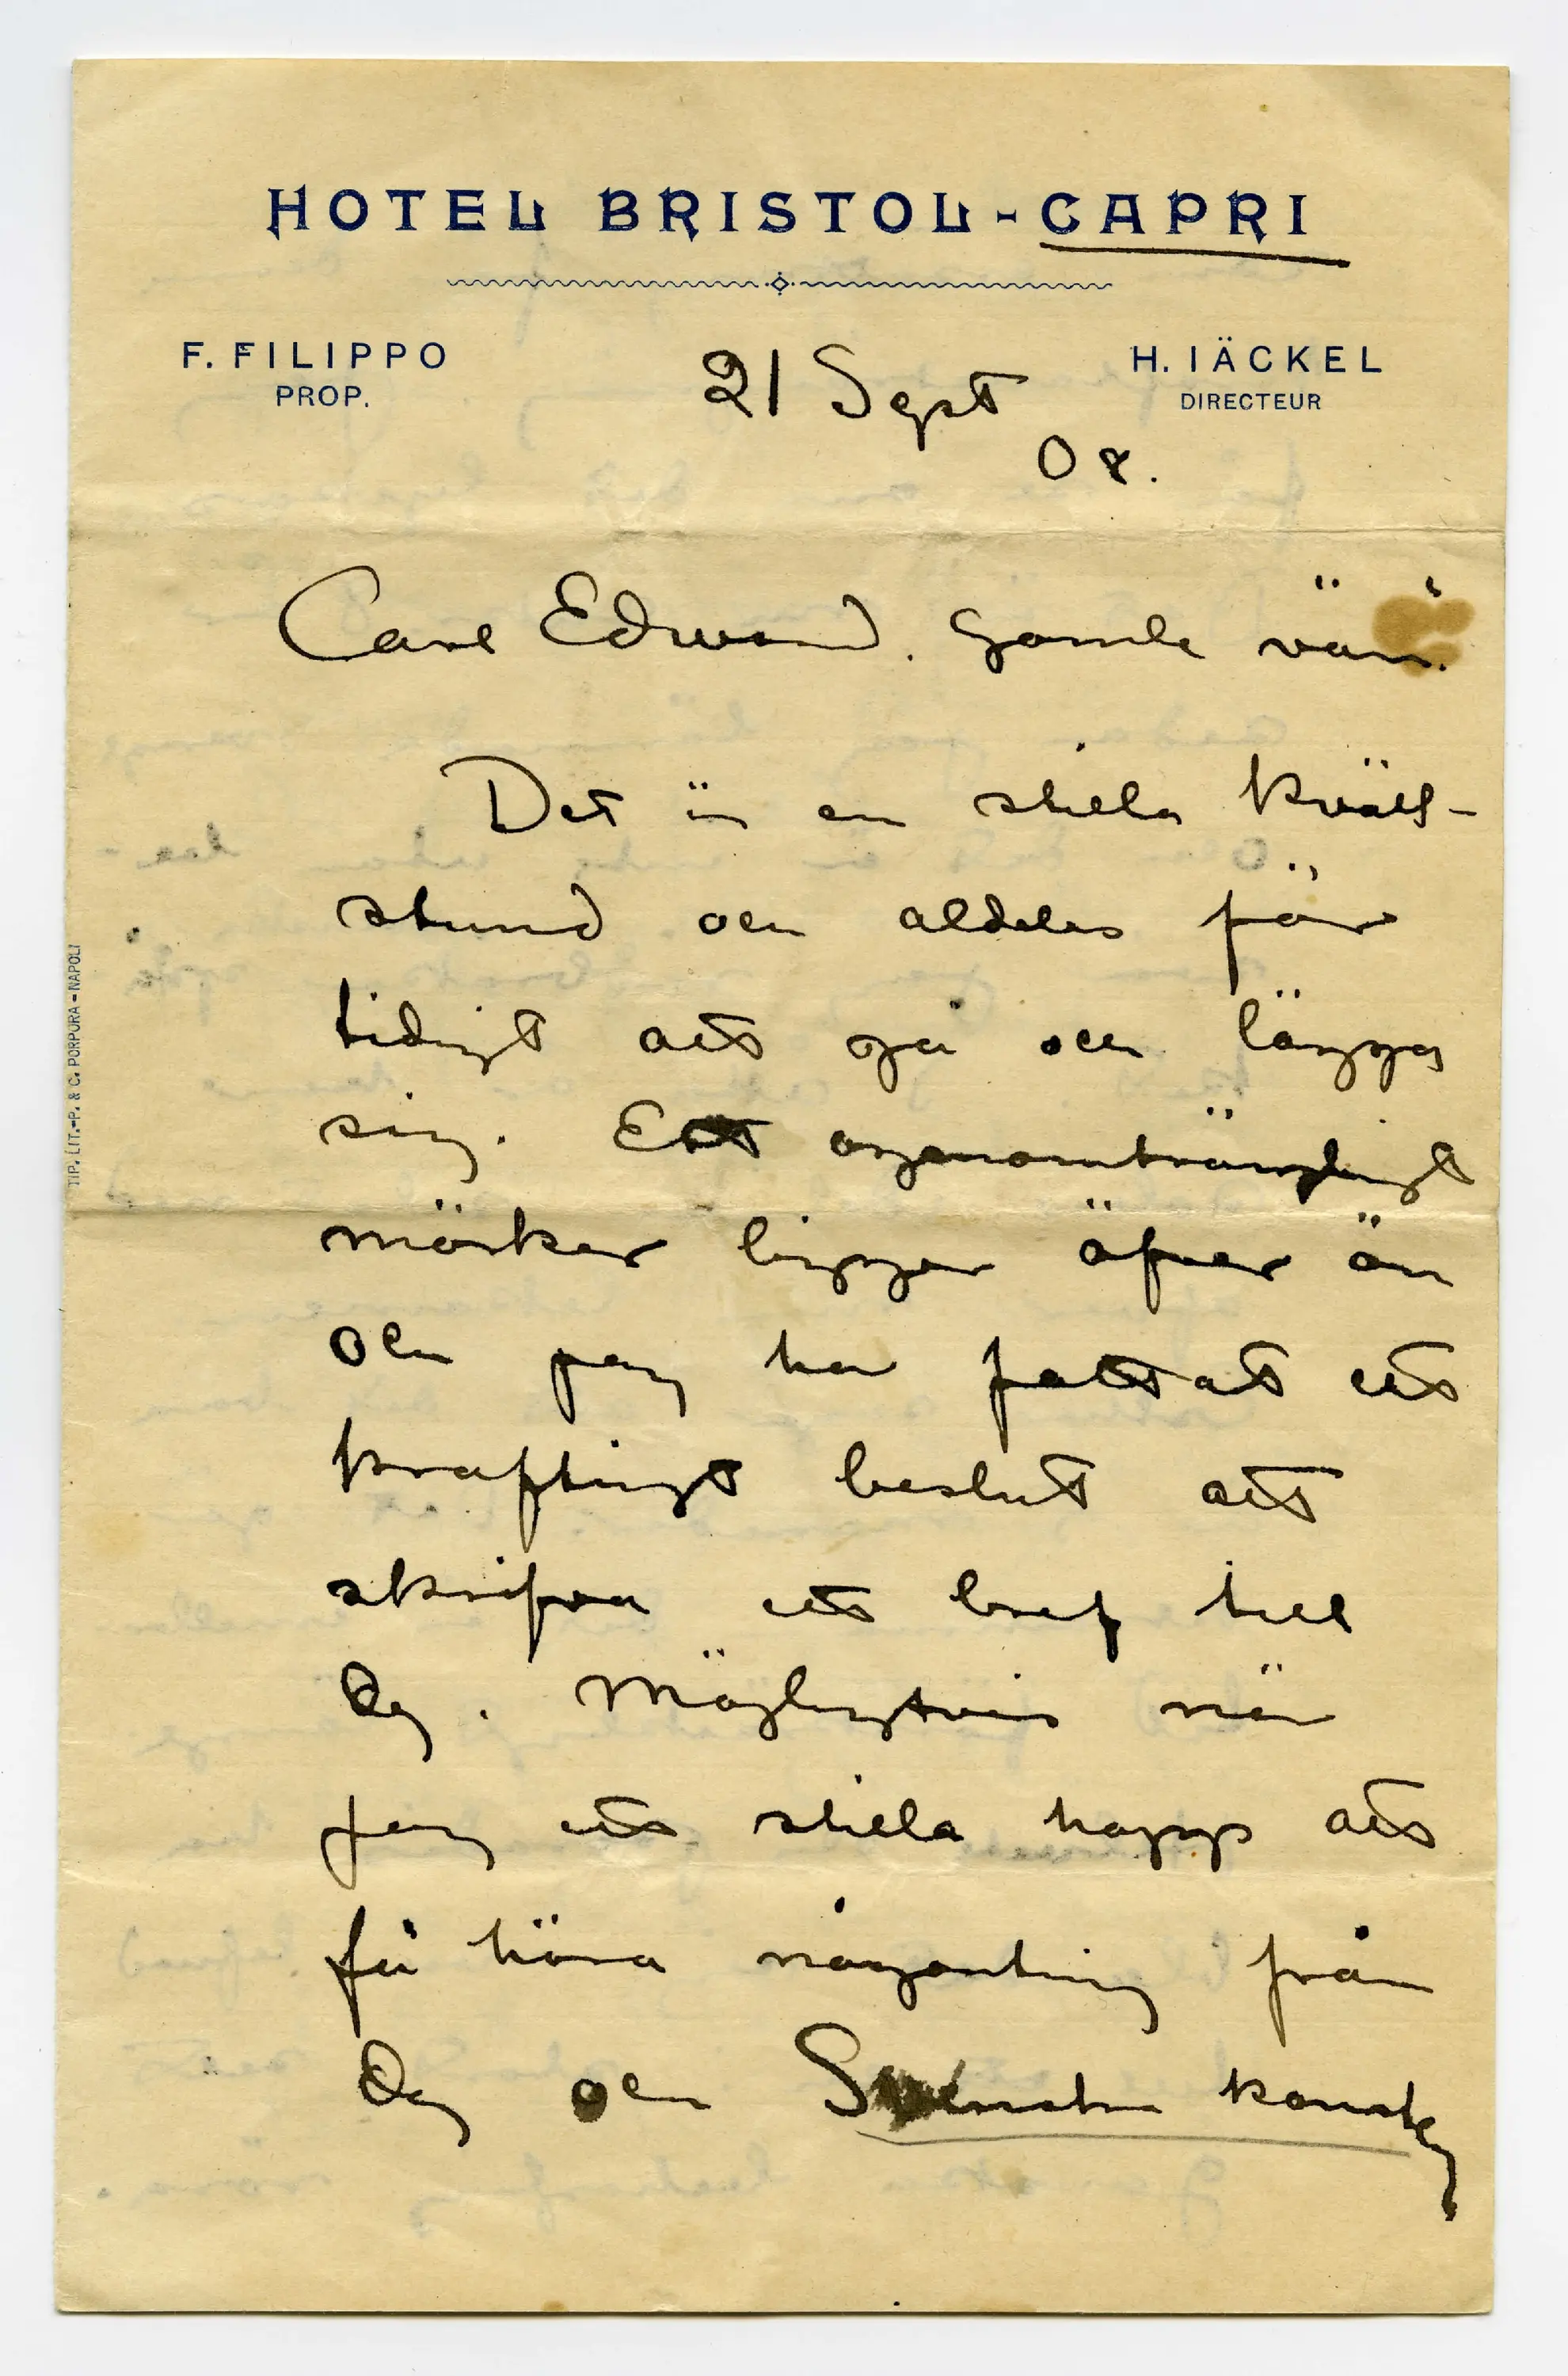 HOTEL BRISTOL-CAPRI
F. FILIPPO
PROP.
21 Sept
08.
H. IÄCKEL
DIRECTEUR
Carl Edward. Gamle vän.
Det är en stilla kväll-
stund och aldeles för
tidigt att gå och lägga
sig. Ett ogenomträngligt
mörker ligger öfver ön
och jag har fattat ett
kraftigt beslut att
skrifva ett bref till
Dig. Möjligtvis när
jag ett stilla hopp att
få höra någonting från
Dig och Svenska konst
TIP. LIT.-P. & C. PORPORA-NAPOLI